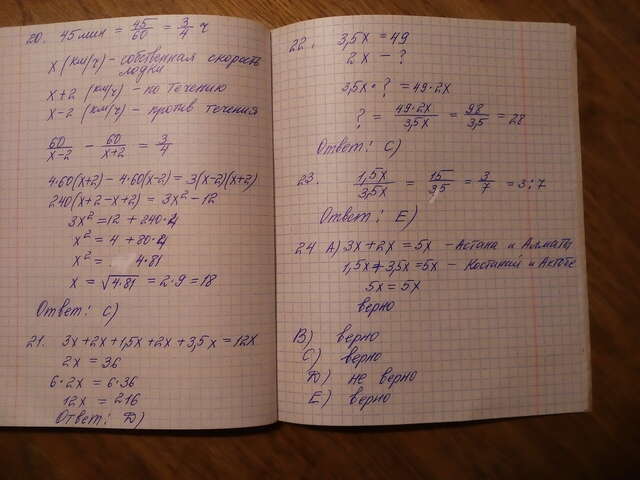 20. 45 мин = 45/60 = 3/4 ч
x (км/ч) - собственная скорость
лодки
x+2 (км/ч) - по течению
x-2 (км/ч) - против течения
60/(x-2) - 60/(x+2) = 3/4
4·60(x+2) - 4·60(x-2) = 3(x-2)(x+2)
240(x+2-x+2) = 3x² - 12
3x² = 12 + 240·4
x² = 4 + 80·4
x² = 4·81
x = √4·81 = 2·9 = 18
Ответ: C)
21. 3x+2x+1,5x+2x+3,5x = 12x
2x = 36
6·2x = 6·36
12x = 216
Ответ: D)
22. 3,5x = 49
2x - ?
3,5x · ? = 49·2x
? = 49·2x/3,5x = 98/3,5 = 28
Ответ: C)
23. 1,5x/3,5x = 15/35 = 3/7 = 3:7
Ответ: E)
24 A) 3x+2x = 5x - Астана и Алматы
1,5x+3,5x = 5x - Костанай и Актобе
5x = 5x
верно
B) верно
C) верно
D) не верно
E) верно